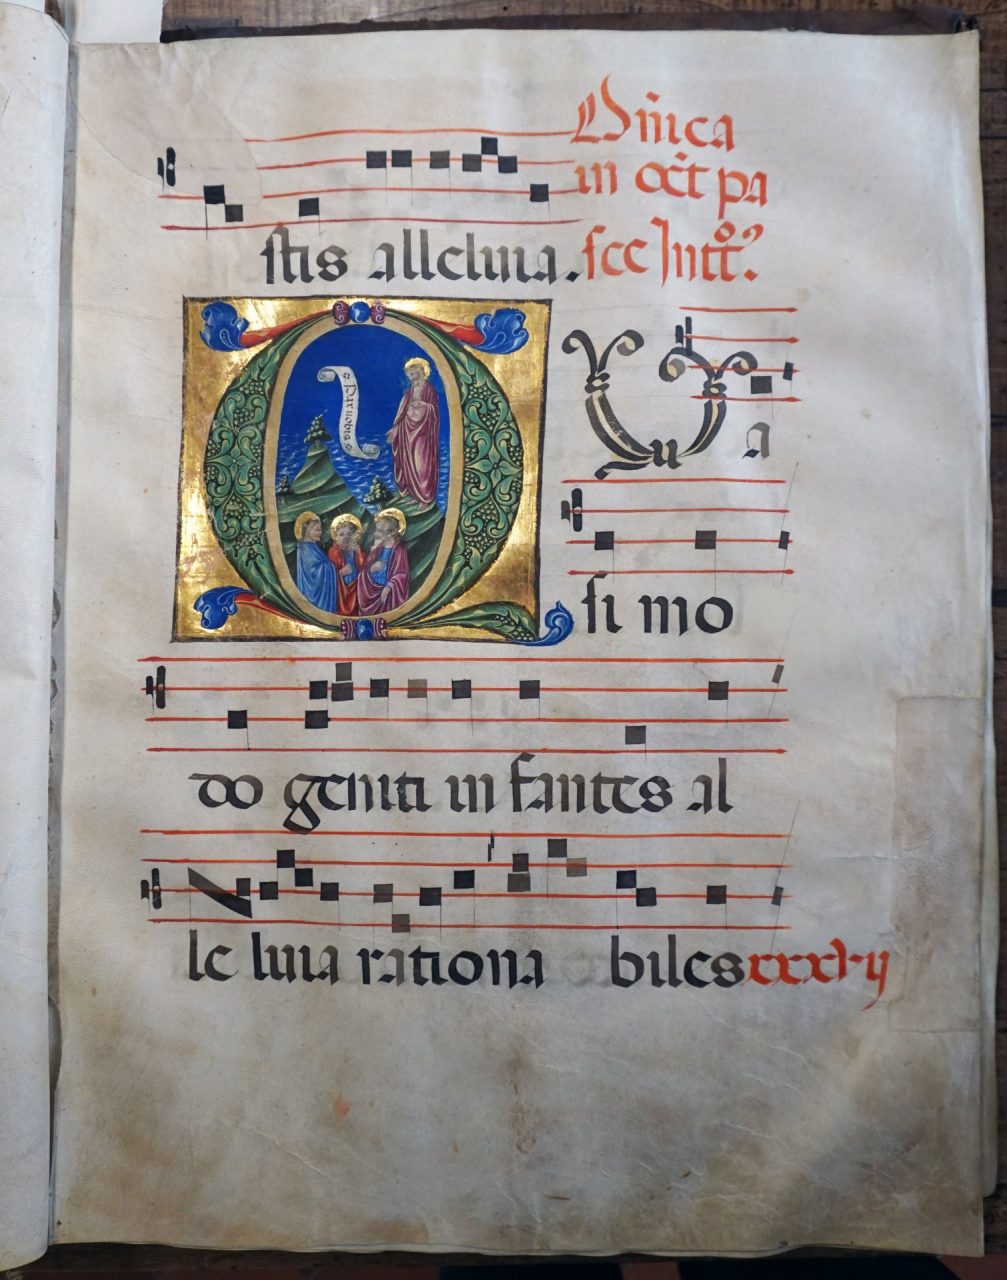 Dñica
in oct̃ pa
stis alleluia. sce Intt̊ꝰ.
Pax uobis
QU a
si mo
do geniti in fantes al
le luia rationa biles xxxvij